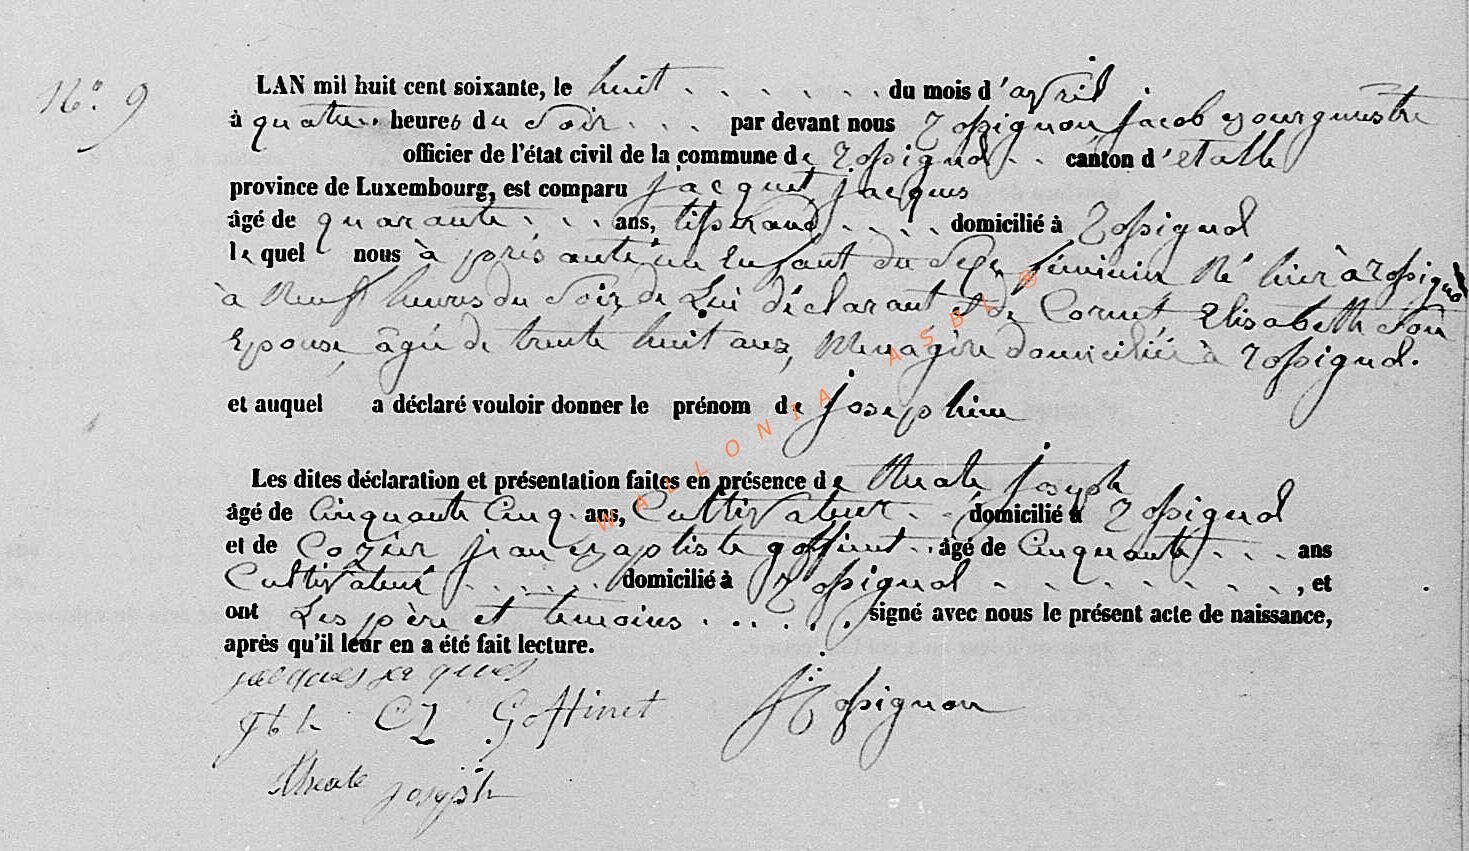 N° 9
LAN mil huit cent soixante, le huit . . . . . . . du mois d'avril
à quatre heures du Soir . . . par devant nous Rossignon jacob Bourgmestre
officier de l'état civil de la commune de Rossignol . . canton d'etalle
province de Luxembourg, est comparu jacquet jacques
âgé de quarante . . . ans, tisserand . . . . domicilié à Rossignol
le quel nous à présenté un Enfant du Sexe féminin Né hier à Rossignol
à Neuf heures du Soir, de Lui déclarant et de Cornet Elisabeth Son
Epouse, âgée de trente huit ans, Ménagère domiciliée à Rossignol.
et auquel a déclaré vouloir donner le prénom de josephine
Les dites déclaration et présentation faites en présence de joseph
âgé de Cinquante Cinq ans, Cultivateur . . domicilié à Rossignol
et de Cozier jean Baptiste goffinet . . âgé de Cinquante . . . ans
Cultivateur . . . . . . domicilié à Rossignol . . . . . . . . , et
ont Les père et temoins . . . . . signé avec nous le présent acte de naissance,
après qu'il leur en a été fait lecture.
jacques
Goffinet Rossignon
joseph
WALLONIA ASBL ®